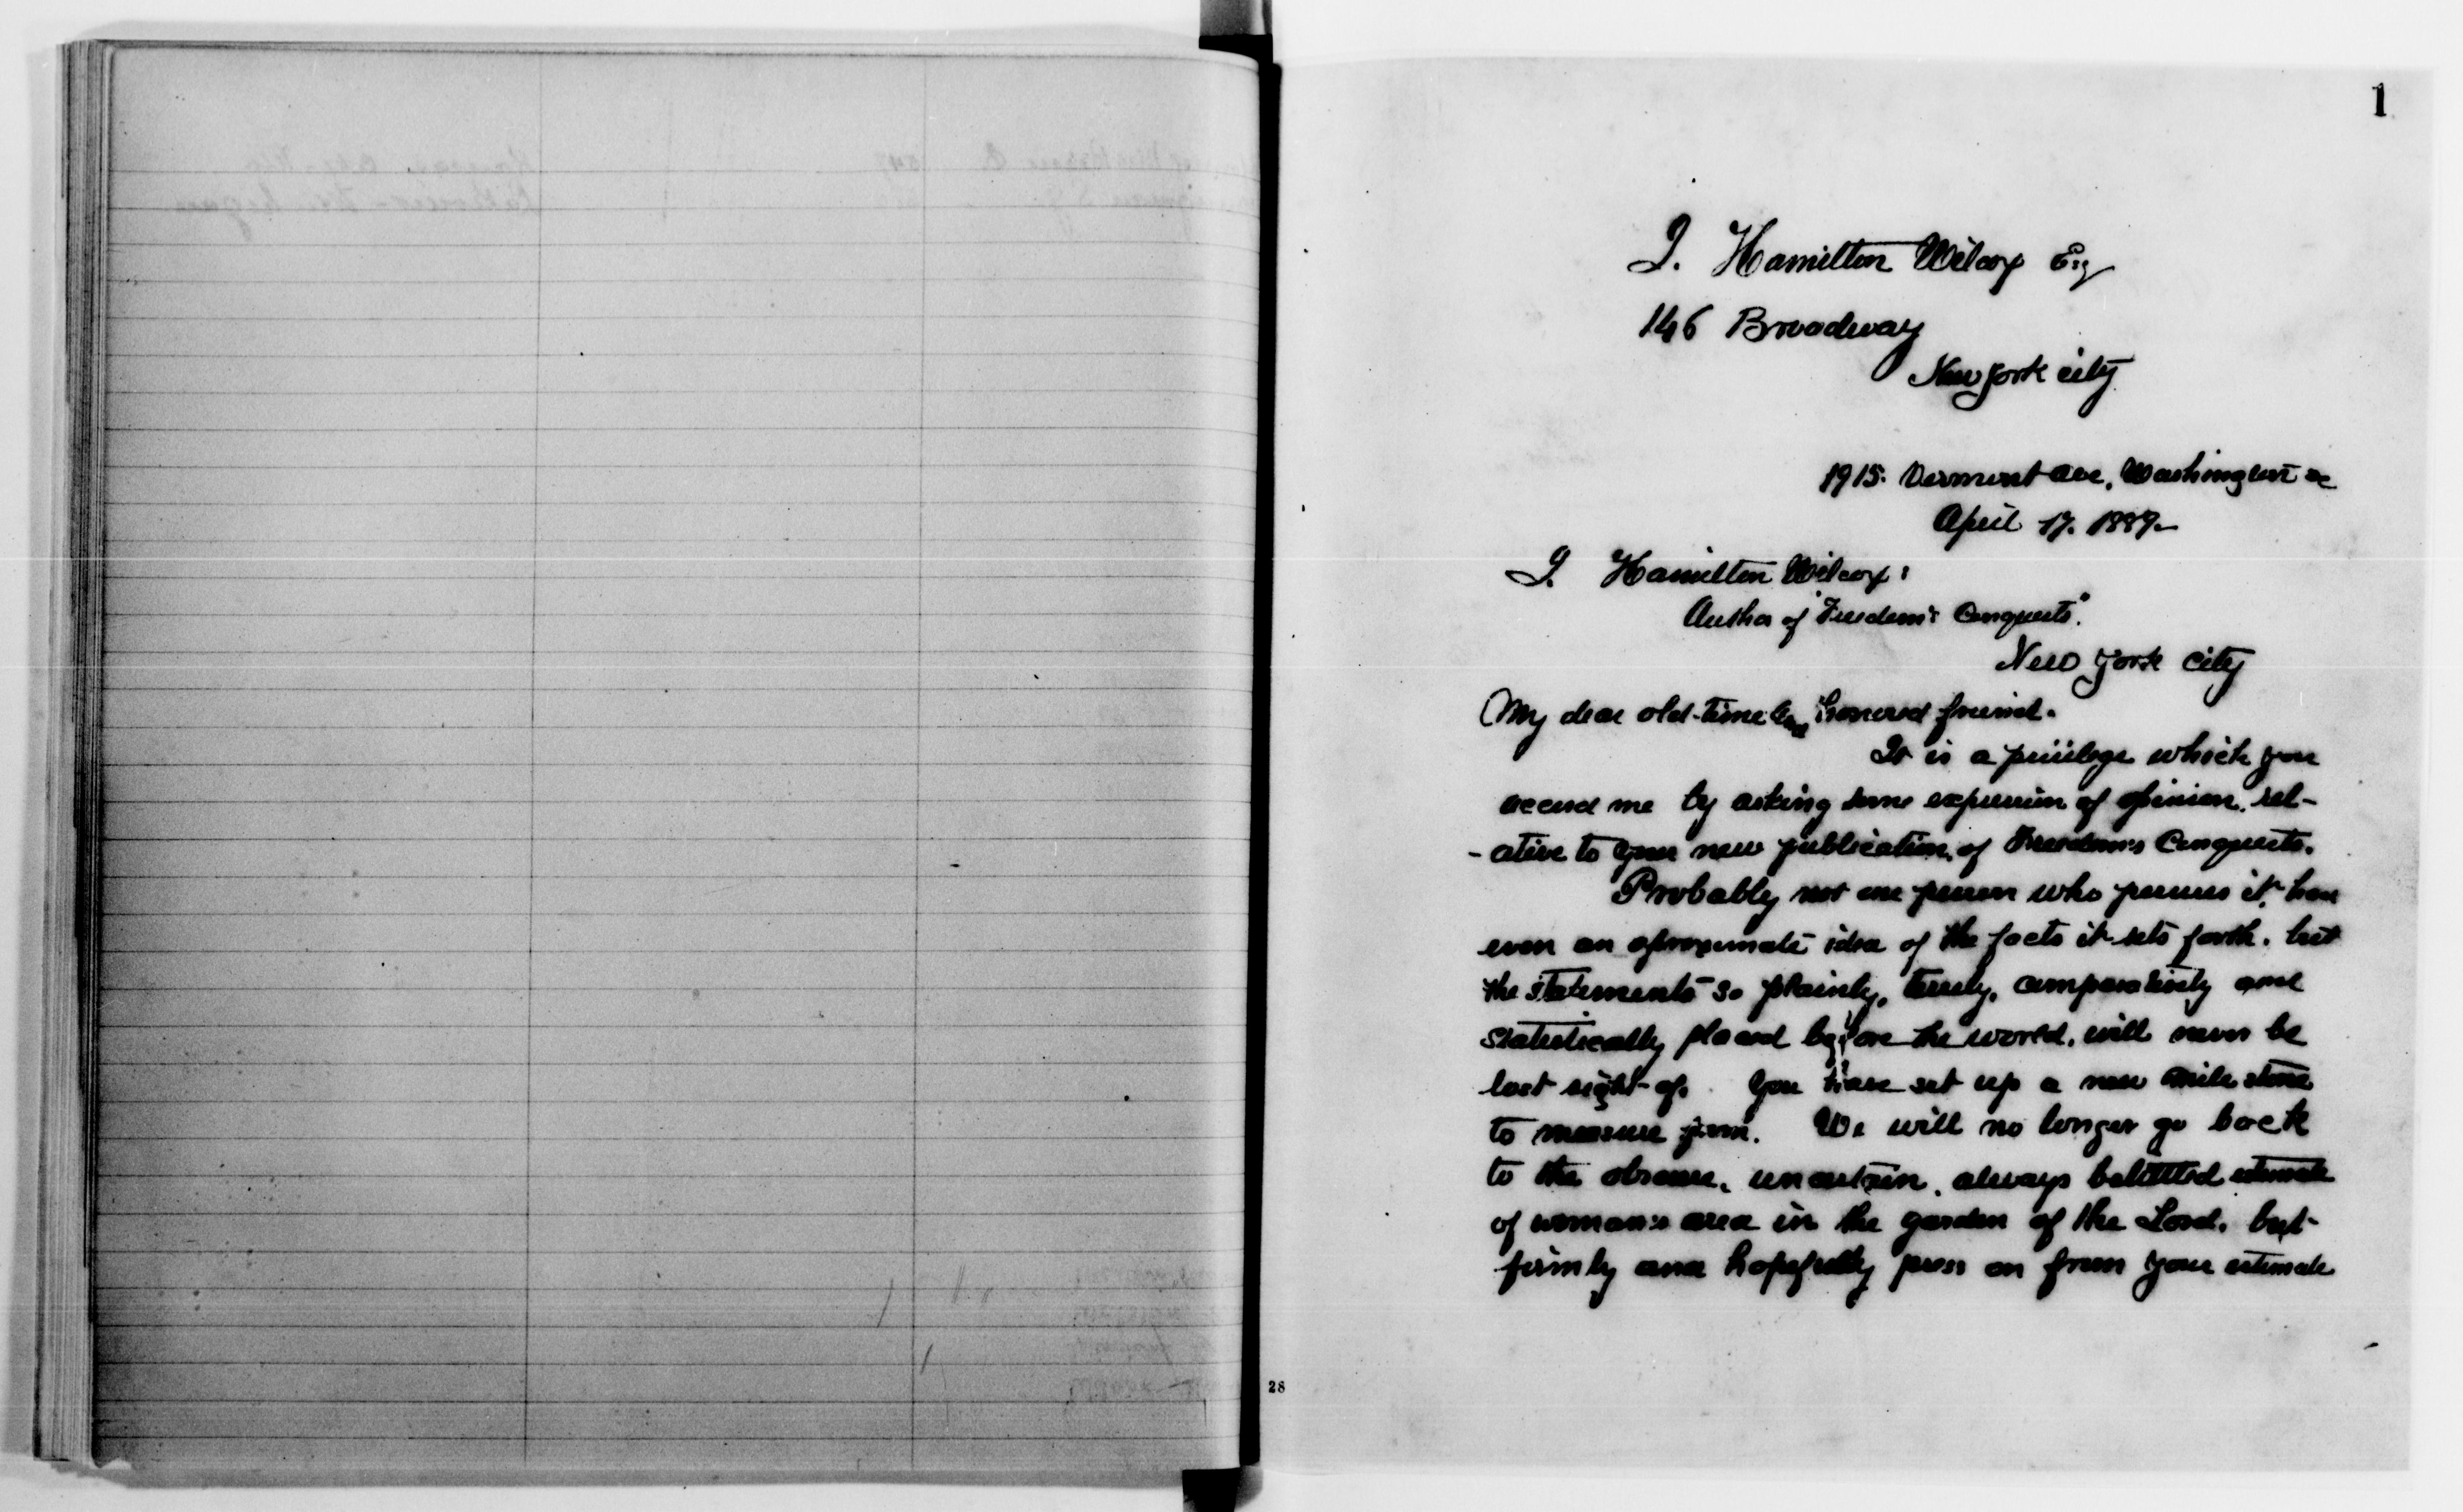 1
J. Hamilton Wilcox Esq
146 Broadway
New York city
1915. Vermont ave, Washington DC
April 17. 1889.
J. Hamilton Wilcox:
Author of "Freedom's Conquests".
New York City
My dear old-time and honored friend.
It is a privilege which you
accord me by asking some expression of opinion, rel-
-ative to your new publication, of Freedom's Conquests.
Probably not one person who peruses it, have
even an aproximate idea of the facts it sets forth. but
the statements so plainly, tersely, comparatively and
statistically placed before the world, will never be
lost sight of. You have set up a new mile stone
to measure from. We will no longer go back
to the obscure, uncertain, always belittled estimate
of woman's area in the garden of the Lord, but
firmly and hopefully press on from your estimate
28